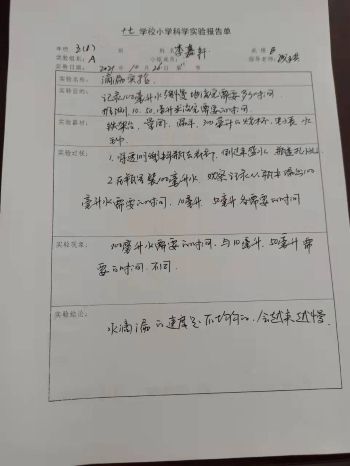 十七 学校小学科学实验报告单
年级 五(1) 班 姓名 李嘉轩
实验组别: A 小组成员: 指导老师:
实验日期: 2021 年 10 月 26 日
实验名称: 滴漏实验
实验目的: 记录100毫升水 需要多少时间
10、50毫升 需要的时间
实验器材: 铁架台、 漏斗、300毫升的烧杯、 水
实验过程: 1.将透明塑料瓶去底 倒过来 孔
2.在瓶里装100毫升水 观察记录从瓶中漏出100
毫升水需要的时间,10毫升 50毫升各需要的时间
实验现象: 100毫升水需要的时间,与10毫升、50毫升需
要的时间不同.
实验结论: 水滴漏的速度是不均匀的,会越来越慢.